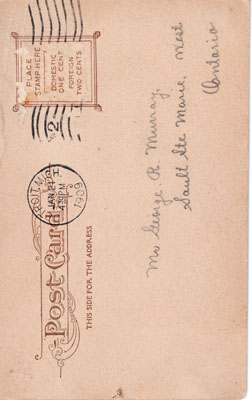 PLACE
STAMP HERE
DOMESTIC
ONE CENT
FOREIGN
TWO CENTS
2
JAN 21
4 PM
1909
Post Card
THIS SIDE FOR THE ADDRESS
Mr George R. Murray
Sault Ste Marie, West
Ontario